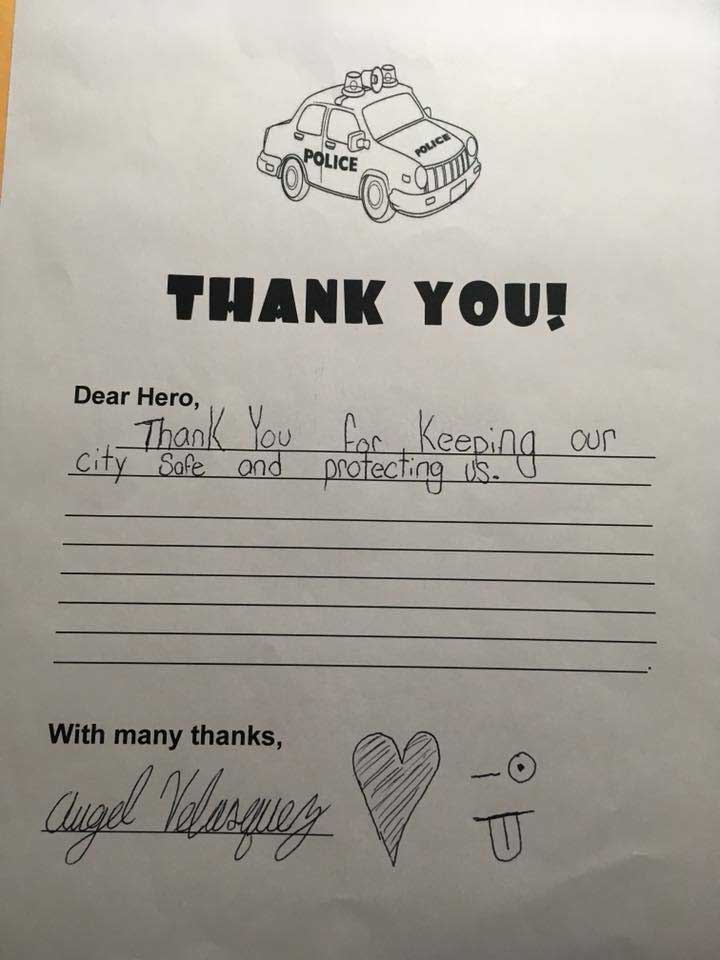 POLICE
POLICE
THANK YOU!
Dear Hero,
Thank You for Keeping our
city Safe and protecting us.
With many thanks,
Angel Velasquez